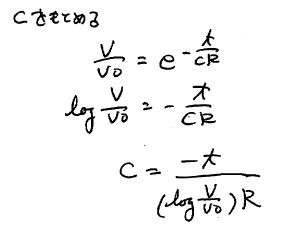 Cをもとめる
V/V0 = e^(-t/CR)
log V/V0 = - t/CR
C = -t/((log V/V0)R)